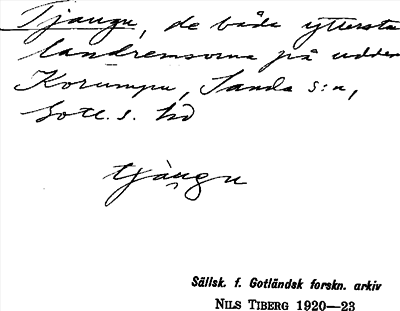 Tjaugu, de båda yttersta
landrensorna på udden
Korumpu, Sanda s:n,
Gotl. s. hd
tjàugu
Sällsk. f. Gotländsk forskn. arkiv
NILS TIBERG 1920—23